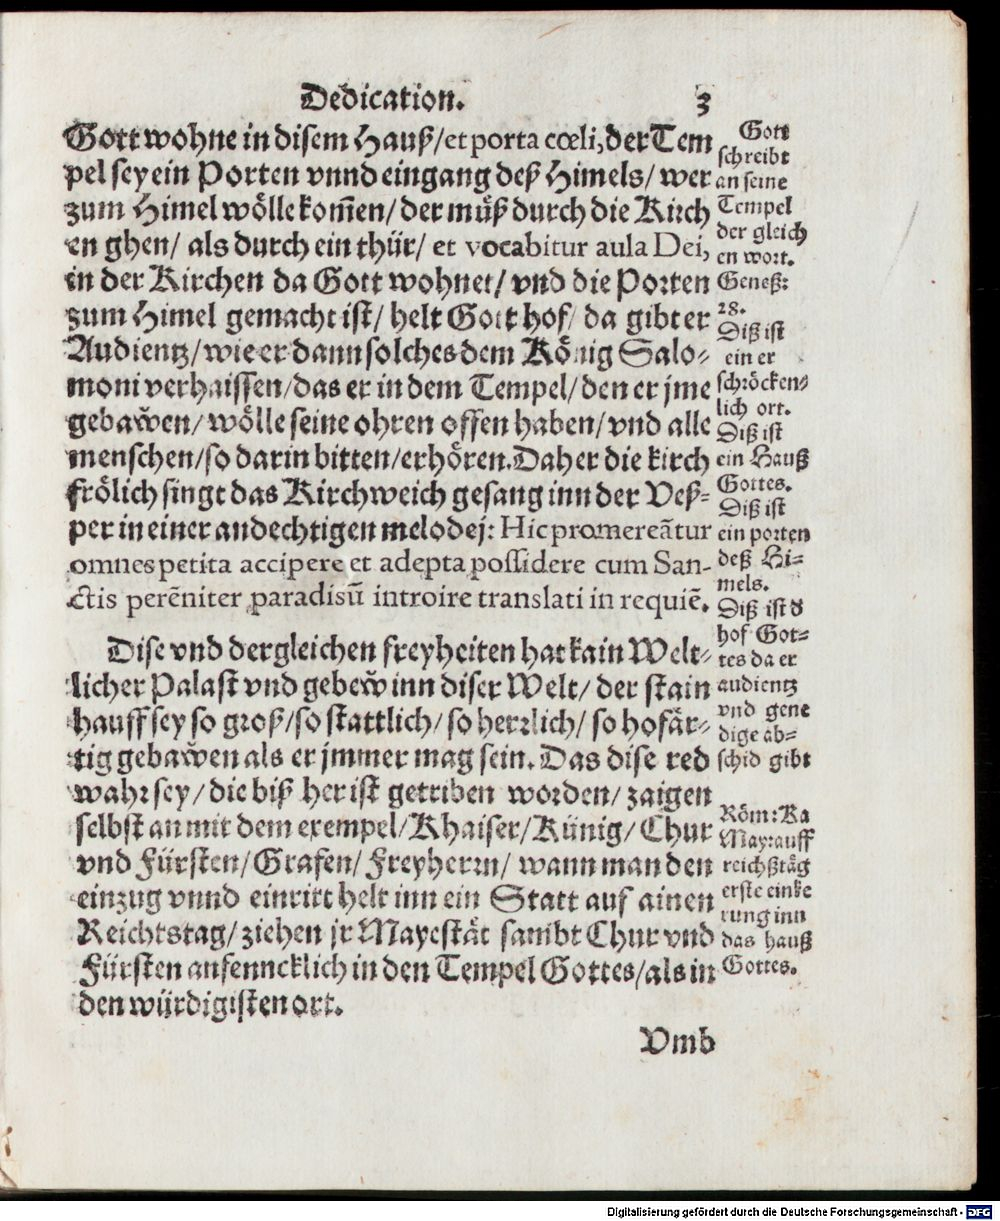 Dedication. 3
Gott wohne in disem Hauß/ et porta cœli, der Tem
pel sey ein Porten vnnd eingang deß Himels/ wer
zum Himel wölle kom̃en/ der müß durch die Kirch
en ghen/ als durch ein thür/ et vocabitur aula Dei,
in der Kirchen da Gott wohnet/ vnd die Porten
zum Himel gemacht ist/ helt Gott hof/ da gibt er
Audientz/ wie er dann solches dem König Salo⸗
moni verhaissen/ das er in dem Tempel/ den er jme
gebaw̃en/ wölle seine ohren offen haben/ vnd alle
menschen/ so darin bitten/ erhören. Daher die kirch
frölich singt das Kirchweich gesang inn der Veß⸗
per in einer andechtigen melodej: Hic promereãtur
omnes petita accipere et adepta possidere cum San-
ctis perẽniter paradisũ introire translati in requiẽ.
Dise vnd dergleichen freyheiten hat kain Welt⸗
licher Palast vnd gebew̃ inn diser Welt/ der stain
hauff sey so groß/ so stattlich/ so herrlich/ so hofär⸗
tig gebaw̃en als er jmmer mag sein. Das dise red
wahr sey/ die biß her ist getriben worden/ zaigen
selbst an mit dem exempel/ Khaiser/ Künig/ Chur
vnd Fürsten/ Grafen/ Freyherrn/ wann man den
einzug vnnd einritt helt inn ein Statt auf ainen
Reichtstag/ ziehen jr Mayestät sambt Chur vnd
Fürsten anfenncklich in den Tempel Gottes/ als in
den würdigisten ort.
Vmb
Gott
schreibt
an seine
Tempel
der gleich
en wort.
Geneß:
28.
Diß ist
ein er
schröcken⸗
lich ort.
Diß ist
ein Hauß
Gottes.
Diß ist
ein porten
deß Hi⸗
mels.
Diß ist d
hof Got⸗
tes da er
audientz
vnd gene
dige ab⸗
schid gibt
Röm: Ka
May: auff
reichßtäg
erste einke
rung inn
das hauß
Gottes.
Digitalisierung gefördert durch die Deutsche Forschungsgemeinschaft - DFG